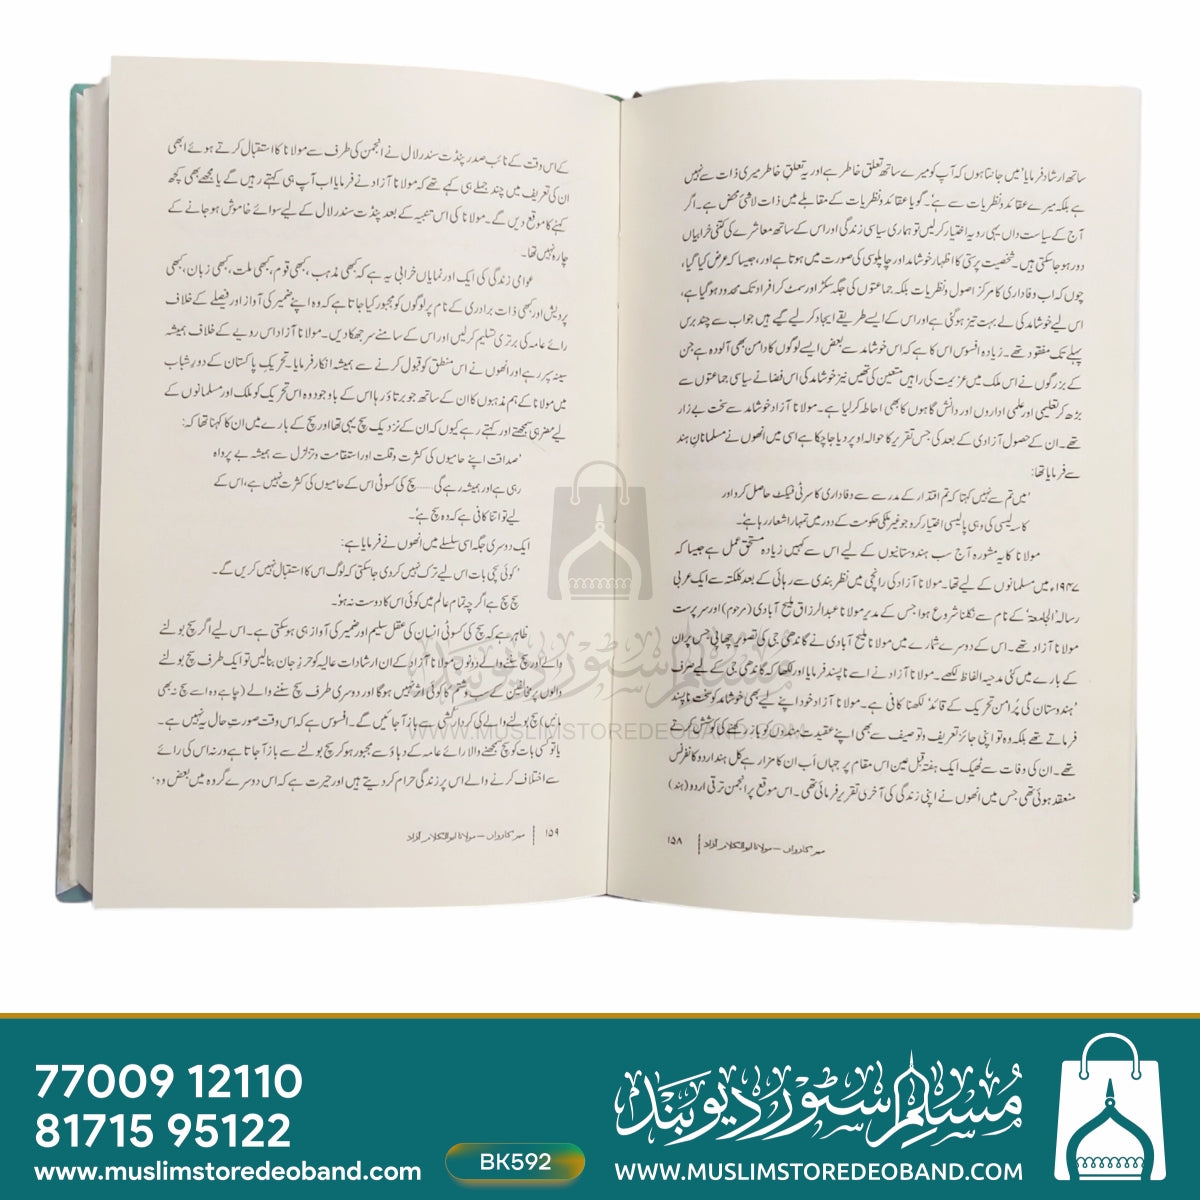 ساتھ ارشاد فرمایا 'میں جانتا ہوں کہ آپ کو میرے ساتھ تعلق خاطر ہے اور یہ تعلق خاطر میری ذات سے نہیں
ہے بلکہ میرے عقائد و نظریات سے ہے'۔ گویا عقائد و نظریات کے مقابلے میں ذات لاشئ محض ہے۔ اگر
آج کے سیاست داں یہی رویہ اختیار کر لیں تو ہماری سیاسی زندگی اور اس کے ساتھ معاشرے کی کتنی خرابیاں
دور ہو جا سکتی ہیں۔ شخصیت پرستی کا اظہار خوشامد اور چاپلوسی کی صورت میں ہوتا ہے اور، جیسا کہ عرض کیا گیا،
چوں کہ اب وفاداری کا مرکز اصول و نظریات بلکہ جماعتوں کی جگہ سکڑ اور سمٹ کر افراد تک محدود ہو گیا ہے،
اس لیے خوشامد کی لے بہت تیز ہو گئی ہے اور اس کے ایسے طریقے ایجاد کر لیے گئے ہیں جو اب سے چند برس
پہلے تک مفقود تھے۔ زیادہ افسوس اس کا ہے کہ اس خوشامد سے بعض ایسے لوگوں کا دامن بھی آلودہ ہے جن
کے بزرگوں نے اس ملک میں عزیمت کی راہیں متعین کی تھیں نیز خوشامد کی اس فضا نے سیاسی جماعتوں سے
بڑھ کر تعلیمی اور علمی اداروں اور دانش گاہوں کا بھی احاطہ کر لیا ہے۔ مولانا آزاد خوشامد سے سخت بے زار
تھے۔ ان کے حصول آزادی کے بعد کی جس تقریر کا حوالہ اوپر دیا جا چکا ہے اسی میں انھوں نے مسلمانان ہند
سے فرمایا تھا:
'میں تم سے نہیں کہتا کہ تم اقتدار کے مدرسے سے وفاداری کا سرٹی فیکٹ حاصل کرو اور
کاسہ لیسی کی وہی پالیسی اختیار کرو جو غیر ملکی حکومت کے دور میں تمہارا شعار رہا ہے'۔
مولانا کا یہ مشورہ آج سب ہندوستانیوں کے لیے اس سے کہیں زیادہ مستحق عمل ہے جیسا کہ
۱۹۴۷ء میں مسلمانوں کے لیے تھا۔ مولانا آزاد کی رانچی میں نظر بندی سے رہائی کے بعد کلکتہ سے ایک عربی
رسالہ 'الجامعہ' کے نام سے نکلنا شروع ہوا جس کے مدیر مولانا عبدالرزاق ملیح آبادی (مرحوم) اور سرپرست
مولانا آزاد تھے۔ اس کے دوسرے شمارے میں مولانا ملیح آبادی نے گاندھی جی کی تصویر چھاپی جس پر ان
کے بارے میں کئی مدحیہ الفاظ لکھے۔ مولانا آزاد نے اسے ناپسند فرمایا اور لکھا کہ گاندھی جی کے لیے صرف
'ہندوستان کی پُرامن تحریک کے قائد' لکھنا کافی ہے۔ مولانا آزاد خود اپنے لیے بھی خوشامد کو سخت ناپسند
فرماتے تھے بلکہ وہ تو اپنی جائز تعریف و توصیف سے بھی اپنے عقیدت مندوں کو باز رکھنے کی کوشش کرتے
تھے۔ ان کی وفات سے ٹھیک ایک ہفتہ قبل عین اس مقام پر جہاں اب ان کا مزار ہے کل ہند اردو کانفرنس
منعقد ہوئی تھی جس میں انھوں نے اپنی زندگی کی آخری تقریر فرمائی تھی۔ اس موقع پر انجمن ترقی اردو (ہند)
۱۵۸ | میرِ کارواں – مولانا ابوالکلام آزاد
کے اس وقت کے نائب صدر پنڈت سندر لال نے انجمن کی طرف سے مولانا کا استقبال کرتے ہوئے ابھی
ان کی تعریف میں چند جملے ہی کہے تھے کہ مولانا آزاد نے فرمایا اب آپ ہی کہتے رہیں گے یا مجھے بھی کچھ
کہنے کا موقع دیں گے۔ مولانا کی اس تنبیہ کے بعد پنڈت سندر لال کے لیے سوائے خاموش ہو جانے کے
چارہ نہیں تھا۔
عوامی زندگی کی ایک اور نمایاں خرابی یہ ہے کہ کبھی مذہب، کبھی قوم، کبھی ملت، کبھی زبان، کبھی
پردیش اور کبھی ذات برادری کے نام پر لوگوں کو مجبور کیا جاتا ہے کہ وہ اپنے ضمیر کی آواز اور فیصلے کے خلاف
رائے عامہ کی برتری تسلیم کر لیں اور اس کے سامنے سر جھکا دیں۔ مولانا آزاد اس رویے کے خلاف ہمیشہ
سینہ سپر رہے اور انھوں نے اس منطق کو قبول کرنے سے ہمیشہ انکار فرمایا۔ تحریک پاکستان کے دورِ شباب
میں مولانا کے ہم مذہبوں کا ان کے ساتھ جو برتاؤ رہا اس کے باوجود وہ اس تحریک کو ملک اور مسلمانوں کے
لیے مضر ہی سمجھتے اور کہتے رہے کیوں کہ ان کے نزدیک سچ یہی تھا اور سچ کے بارے میں ان کا کہنا تھا کہ:
'صداقت اپنے حامیوں کی کثرت و قلت اور استقامت و تزلزل سے ہمیشہ بے پرواہ
رہی ہے اور ہمیشہ رہے گی...... سچ کی کسوٹی اس کے حامیوں کی کثرت نہیں ہے، اس کے
لیے تو اتنا کافی ہے کہ وہ سچ ہے'۔
ایک دوسری جگہ اسی سلسلے میں انھوں نے فرمایا ہے:
'کوئی سچی بات اس لیے ترک نہیں کر دی جا سکتی کہ لوگ اس کا استقبال نہیں کریں گے۔
سچ سچ ہے اگرچہ تمام عالم میں کوئی اس کا دوست نہ ہو'۔
ظاہر ہے کہ سچ کی کسوٹی انسان کی عقل سلیم اور ضمیر کی آواز ہی ہو سکتی ہے۔ اس لیے اگر سچ بولنے
والے اور سچ سننے والے دونوں مولانا آزاد کے ان ارشادات عالیہ کو حرزِ جان بنا لیں تو ایک طرف سچ بولنے
والوں پر مخالفین کے سب و شتم کا کوئی اثر نہیں ہوگا اور دوسری طرف سچ سننے والے (چاہے وہ اسے سچ نہ بھی
مانیں) سچ بولنے والے کی کردار کشی سے باز آ جائیں گے۔ افسوس ہے کہ اس وقت صورت حال یہ نہیں ہے۔
یا تو کسی بات کو سچ سمجھنے والا رائے عامہ کے دباؤ سے مجبور ہو کر سچ بولنے سے باز آ جاتا ہے ورنہ اس کی رائے
سے اختلاف کرنے والے اس پر زندگی حرام کر دیتے ہیں اور حیرت ہے کہ اس دوسرے گروہ میں بعض وہ
۱۵۹ | میرِ کارواں – مولانا ابوالکلام آزاد
مسلم سٹور دیوبند
WWW.MUSLIMSTOREDEOBAND.COM
77009 12110
81715 95122
www.muslimstoredeoband.com
BK592
مسلم سٹور دیوبند
WWW.MUSLIMSTOREDEOBAND.COM